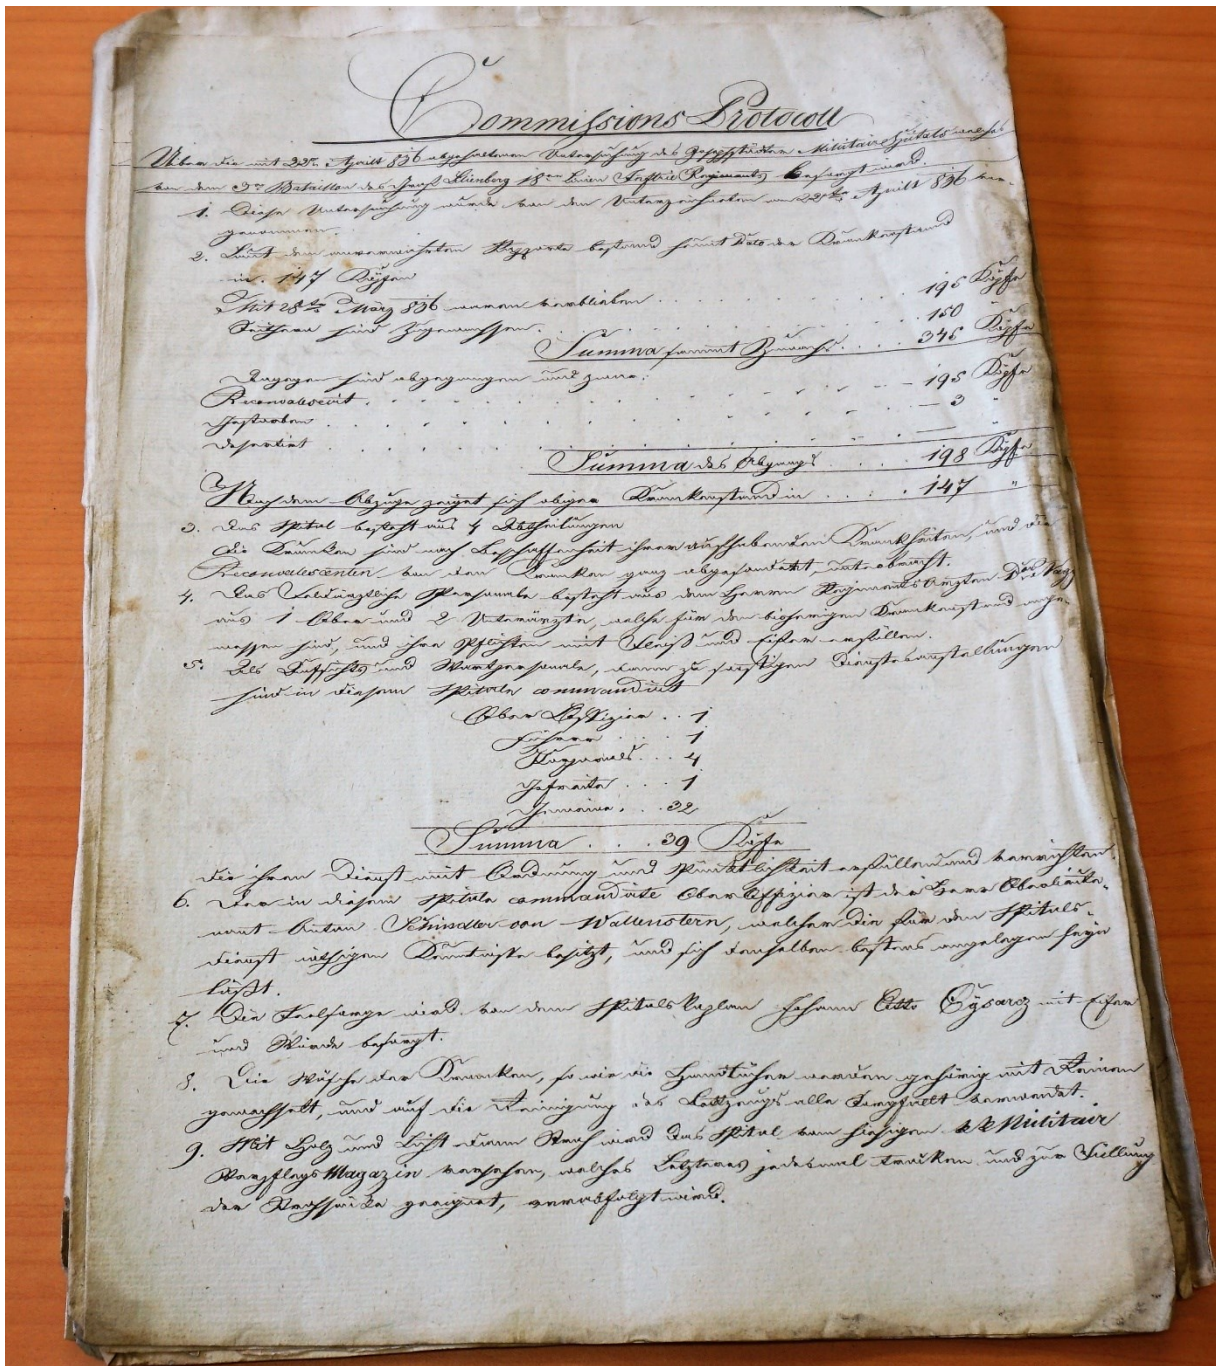 Commissions Protocoll
Über die mit 22ten Aprill 836 abgehaltenen Untersuchung des Josephstädter Militair Spitals welches
von dem 3ten Bataillon des Graf Lilienberg 18ten Linien Inftrie Regiments besorgt wird.
1. Diese Untersuchung wurde von den Unterzeichneten am 22ten Aprill 836 vor-
genommen.
2. Laut dem anverwahrten Rapporte bestand heut Dato der Krankenstand
in 147 Köpfen
Mit 28ten März 836 waren verblieben . . . 195 Köpfe
Seithero sind zugewachsen . . . 150
Summa sammt Zuwachs . . . 345 Köpfe
Dagegen sind abgegangen und zwar:
Reconvalescirt . . . 195 Köpfe
Gestorben . . . 3 "
Desertirt . . . — "
Summa des Abgangs . . . 198 Köpfe
Nach dem Abzuge zeiget sich obiger Krankenstand in . . . . 147 "
3. Das Spital besteht aus 4 Abtheilungen
Die Kranken sind nach Beschaffenheit ihrer aufhabenden Krankheiten, und die
Reconvalescenten von den Kranken ganz abgesondert, unterbracht.
4. Das Feldärztliche Personale besteht aus dem Herrn Regiments Arzten
aus 1 Ober und 2 Unterärzte, welche für den bisherigen Krankenstand ange-
messen sind, und ihre Pflichten mit Fleiß und Eifer erfüllen.
5. Als Aufsichts und Wartpersonale, dann zu sonstigen Dienstesanstellungen
sind in diesem Spitale commandirt
Ober Offizier . . 1
Führer . . . 1
Korporals . . . 4
Gefreite . . . 1
Gemeine . . . 32
Summa . . . 39 Köpfe
die ihren Dienst mit Ordnung und Pünktlichkeit erfüllen und verrichten.
6. Der in diesem Spitale commandirte Oberoffizier ist der Herr Oberlieute-
nant Anton Schindler von Wallenstern, welcher die für den Spitals-
dienst nöthigen Kenntniße besitzt, und sich denselben bestens angelegen seyn
läßt.
7. Die Seelsorge wird von dem Spitalskaplan Johann Otto Cÿsarz mit Eifer
und Würde besorgt.
8. Die Wäsche der Kranken, so wie die Handtücher werden gehörig mit Reinen
gewechselt, und auf die Reinigung des Bettzeugs alle Sorgfallt verwendet.
9. Mit Holz und Licht dann Stroh wird das Spital vom hiesigen kk Militair
Verpflegs Magazin versehen, welches Letzteres jedesmal trocken und zur Füllung
der Strohsäcke geeignet, verabfolgt wird.